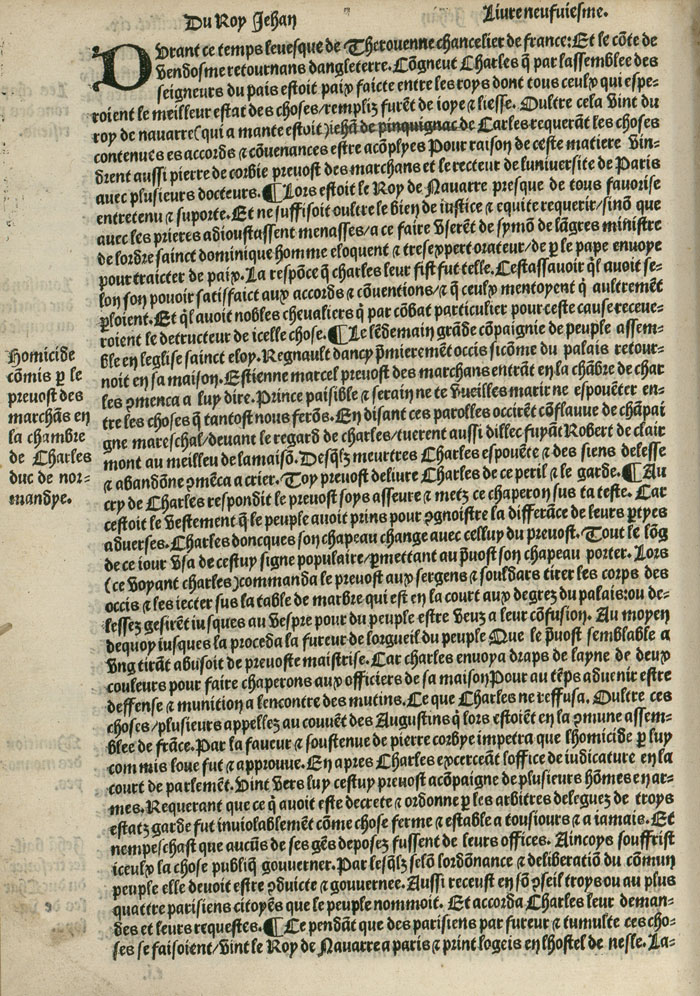 Du Roy Jehan
Liure neufuiesme.
DVrant ce temps leuesque de Therouenne chancelier de france: Et le cõte de
Vendosme retournans dangleterre. Cõgneut Charles q̃ par lassemblee des
seigneurs du pais estoit paix faicte entre les roys dont tous ceulx qui espe-
roient le meilleur estat des choses/rempliz furẽt de ioye ⁊ liesse. Oultre cela vint du
roy de nauarre (qui a mante estoit) iehã de pinquignac de Carles requerãt les choses
contenues es accords ⁊ cõuenances estre acõplyes Pour raison de ceste matiere vin-
drent aussi pierre de corbie preuost des marchans et le recteur de luniuersite de Paris
auec plusieurs docteurs. ¶ Lors estoit le Roy de Nauarre presque de tous fauorise
entretenu ⁊ suporte. Et ne suffisoit oultre le bien de iustice ⁊ equite requerir/sinõ que
auec les prieres adioustassent menasses/a ce faire vserẽt de symõ de lãgres ministre
de lordre sainct dominique homme eloquent ⁊ tresexpert orateur/de ꝑ le pape enuoye
pour traicter de paix. La respõce q̃ charles leur fist fut telle. Cestassauoir ql̃ auoit se-
lon son pouoir satisfaict aux accords ⁊ cõuentions/⁊ q̃ ceulx mentoyent q̃ aultremẽt
ꝑloient. Et ql̃ auoit nobles cheualiers q̃ par cõbat particulier pour ceste cause receue-
roient le detructeur de icelle chose. ¶ Le lẽdemain grãde cõpaignie de peuple assem-
ble en leglise sainct eloy. Regnault dancy p̃mierement occis sicõme du palais retour-
noit en sa maison. Estienne marcel preuost des marchans entrãt en la chãbre de char
les ꝯmenca a luy dire. Prince paisible ⁊ serain ne te vueilles marir ne espouẽter en-
tre les choses q̃ tantost nous ferõs. En disant ces parolles occirẽt cõflauue de chãpai
gne mareschal/deuant le regard de charles/tuerent aussi dillec fuyãt Robert de clair
mont au meilleu de lamaisõ. Desqlz̃ meurtres Charles espouẽte ⁊ des siens delesse
⁊ abandõne ꝯmẽca a crier. Toy preuost deliure Charles de ce peril ⁊ le garde. ¶ Au
cry de Charles respondit le preuost soys asseure ⁊ metz ce chaperon sus ta teste. Car
cestoit le vestement q̃ le peuple auoit prins pour ꝯgnoistre la differãce de leurs ꝑtyes
aduerses. Charles doncques son chapeau change auec celluy du preuost. Tout le lõg
de ce iour vsa de cestuy signe populaire/ꝑmettant au p̃uost son chapeau porter. Lors
(ce voyant charles) commanda le preuost aux sergens ⁊ souldars tirer les corps des
occis ⁊ les iecter sus la table de marbre qui est en la court aux degrez du palais: ou de-
lessez gesirẽt iusques au vespre pour du peuple estre veuz a leur cõfusion. Au moyen
dequoy iusques la proceda la fureur de lorgueil du peuple Que le p̃uost semblable a
vng tirãt abusoit de preuoste maistrise. Car charles enuoya draps de layne de deux
couleurs pour faire chaperons aux officiers de sa maison Pour au tẽps aduenir estre
deffense ⁊ munition a lencontre des mutins. Ce que Charles ne reffusa. Oultre ces
choses/plusieurs appellez au couuẽt des Augustins q̃ lors estoiẽt en la ꝯmune assem-
blee de frãce. Par la faueur ⁊ soustenue de pierre corbye impetra que lhomicide ꝑ luy
commis loue fut ⁊ approuue. En apres Charles excerceãt loffice de iudicature en la
court de parlemẽt. Vint vers luy cestuy preuost acõpaigne de plusieurs hõmes en ar-
mes. Requerant que ce q̃ auoit este decrete ⁊ ordonne ꝑ les arbitres deleguez de troys
estatz garde fut inuiolablemẽt cõme chose ferme ⁊ estable a tousiours ⁊ a iamais. Et
nempeschast que aucũs de ses gẽs deposez fussent de leurs offices. Aincoys souffrist
iceulx la chose publiq̃ gouuerner. Par lesqlz̃ selõ lordõnance ⁊ deliberatiõ du cõmun
peuple elle deuoit estre ꝯduicte ⁊ gouuernee. Aussi receust en sõ ꝯseil troys ou au plus
quattre parisiens citoyẽs que le peuple nommoit. Et accorda Charles leur deman-
des et leurs requestes. ¶ Ce pendãt que des parisiens par fureur ⁊ tumulte ces cho-
ses se faisoient/vint le Roy de Nauarre a paris ⁊ print logeis en lhostel de nesle. La-
Homicide
cõmis ꝑ le
preuost des
marchãs en
la chambre
de Charles
duc de nor-
mandye.